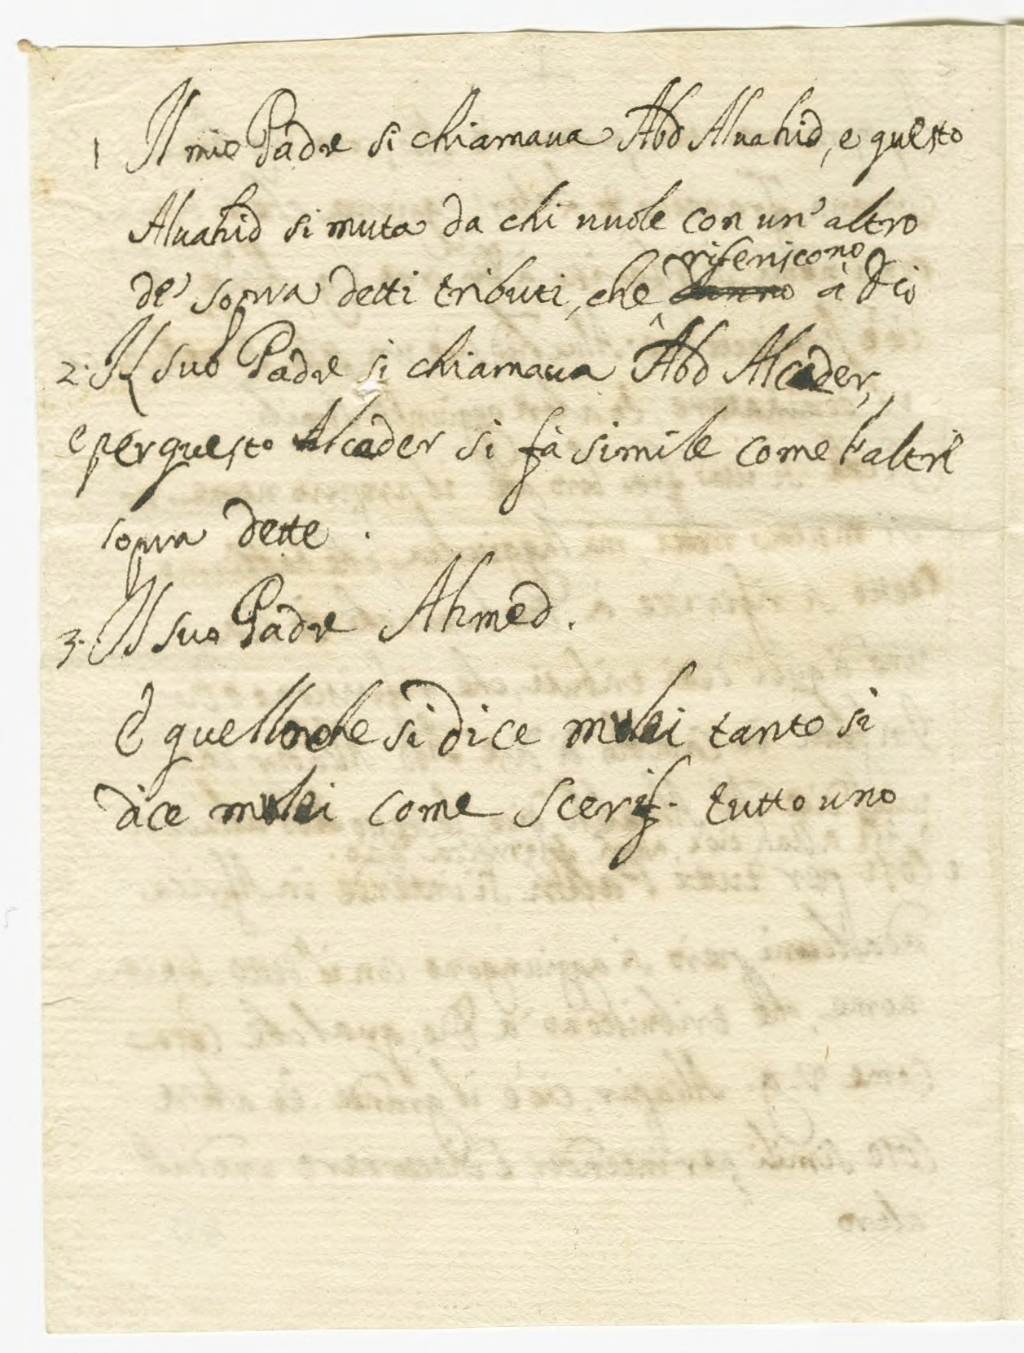 1 Il mio Padre si chiamaua Abd Aluahid, e questo
Aluahid si muta da chi uuole con un' altro
de' sopra detti tributi, che riferiscono à Dio
2. Il suo Padre si chiamaua Abd Alcader,
e per questo Alcader si fà simile come l'altri
sopra dette.
3. Il suo Padre Ahmed.
È quello che si dice mulei tanto si
dice mulei come Scerif. tutto uno